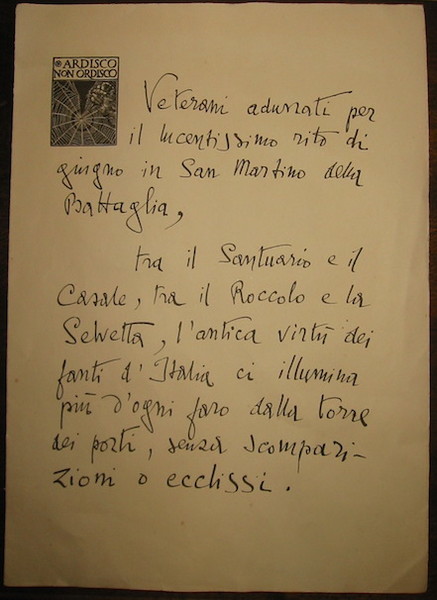 ARDISCO
NON ORDISCO
Veterani adunati per
il lucentissimo rito di
giugno in San Martino della
Battaglia,
tra il Santuario e il
Casale, tra il Roccolo e la
Selvetta, l'antica virtù dei
fanti d'Italia ci illumina
più d'ogni faro dalla torre
dei porti, senza scompari-
zioni o ecclissi.